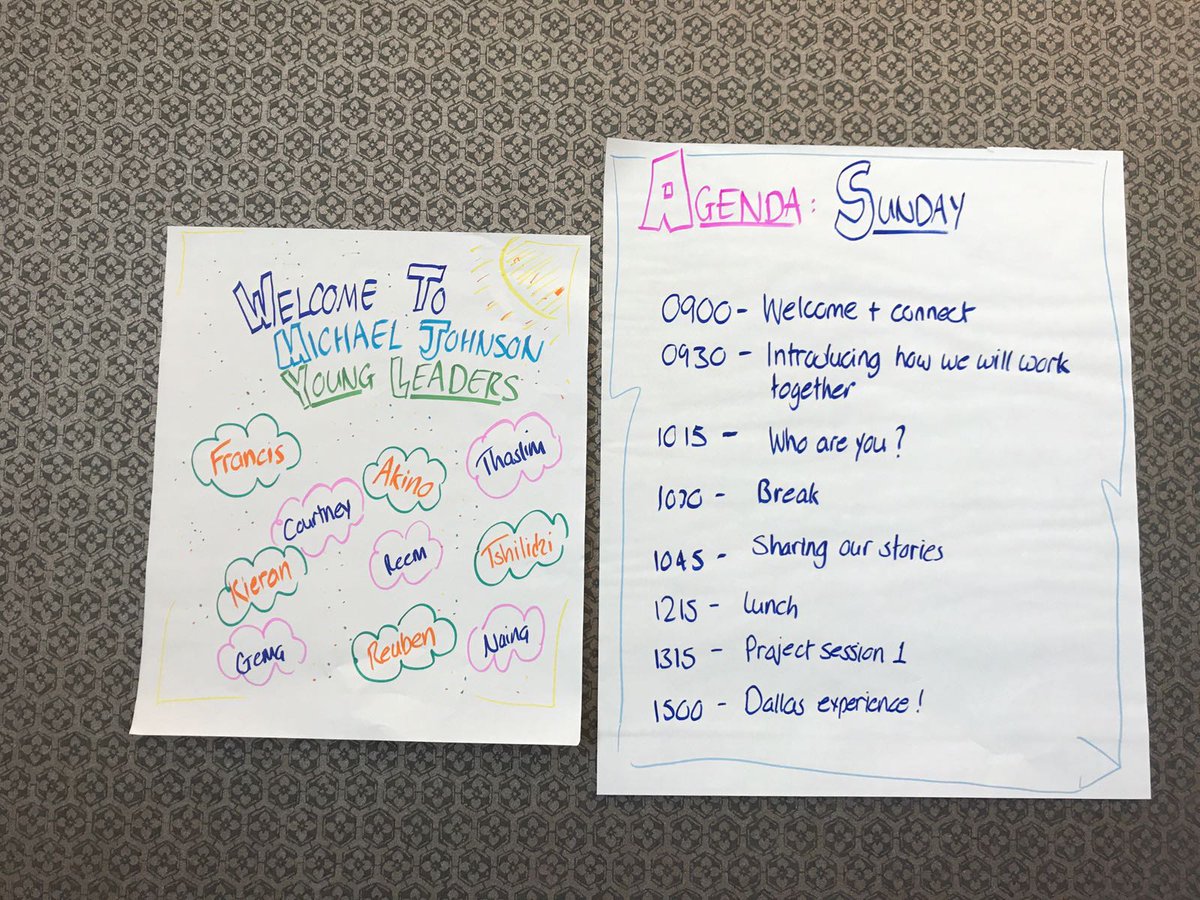 WELCOME TO
MICHAEL JOHNSON
YOUNG LEADERS
Francis
Akino
Thaslim
Courtney
Reem
Tshilidzi
Kieran
Gema
Reuben
Naing
AGENDA: SUNDAY
0900 - Welcome + connect
0930 - Introducing how we will work
together
1015 - Who are you?
1030 - Break
1045 - Sharing our stories
1215 - Lunch
1315 - Project session 1
1500 - Dallas experience!